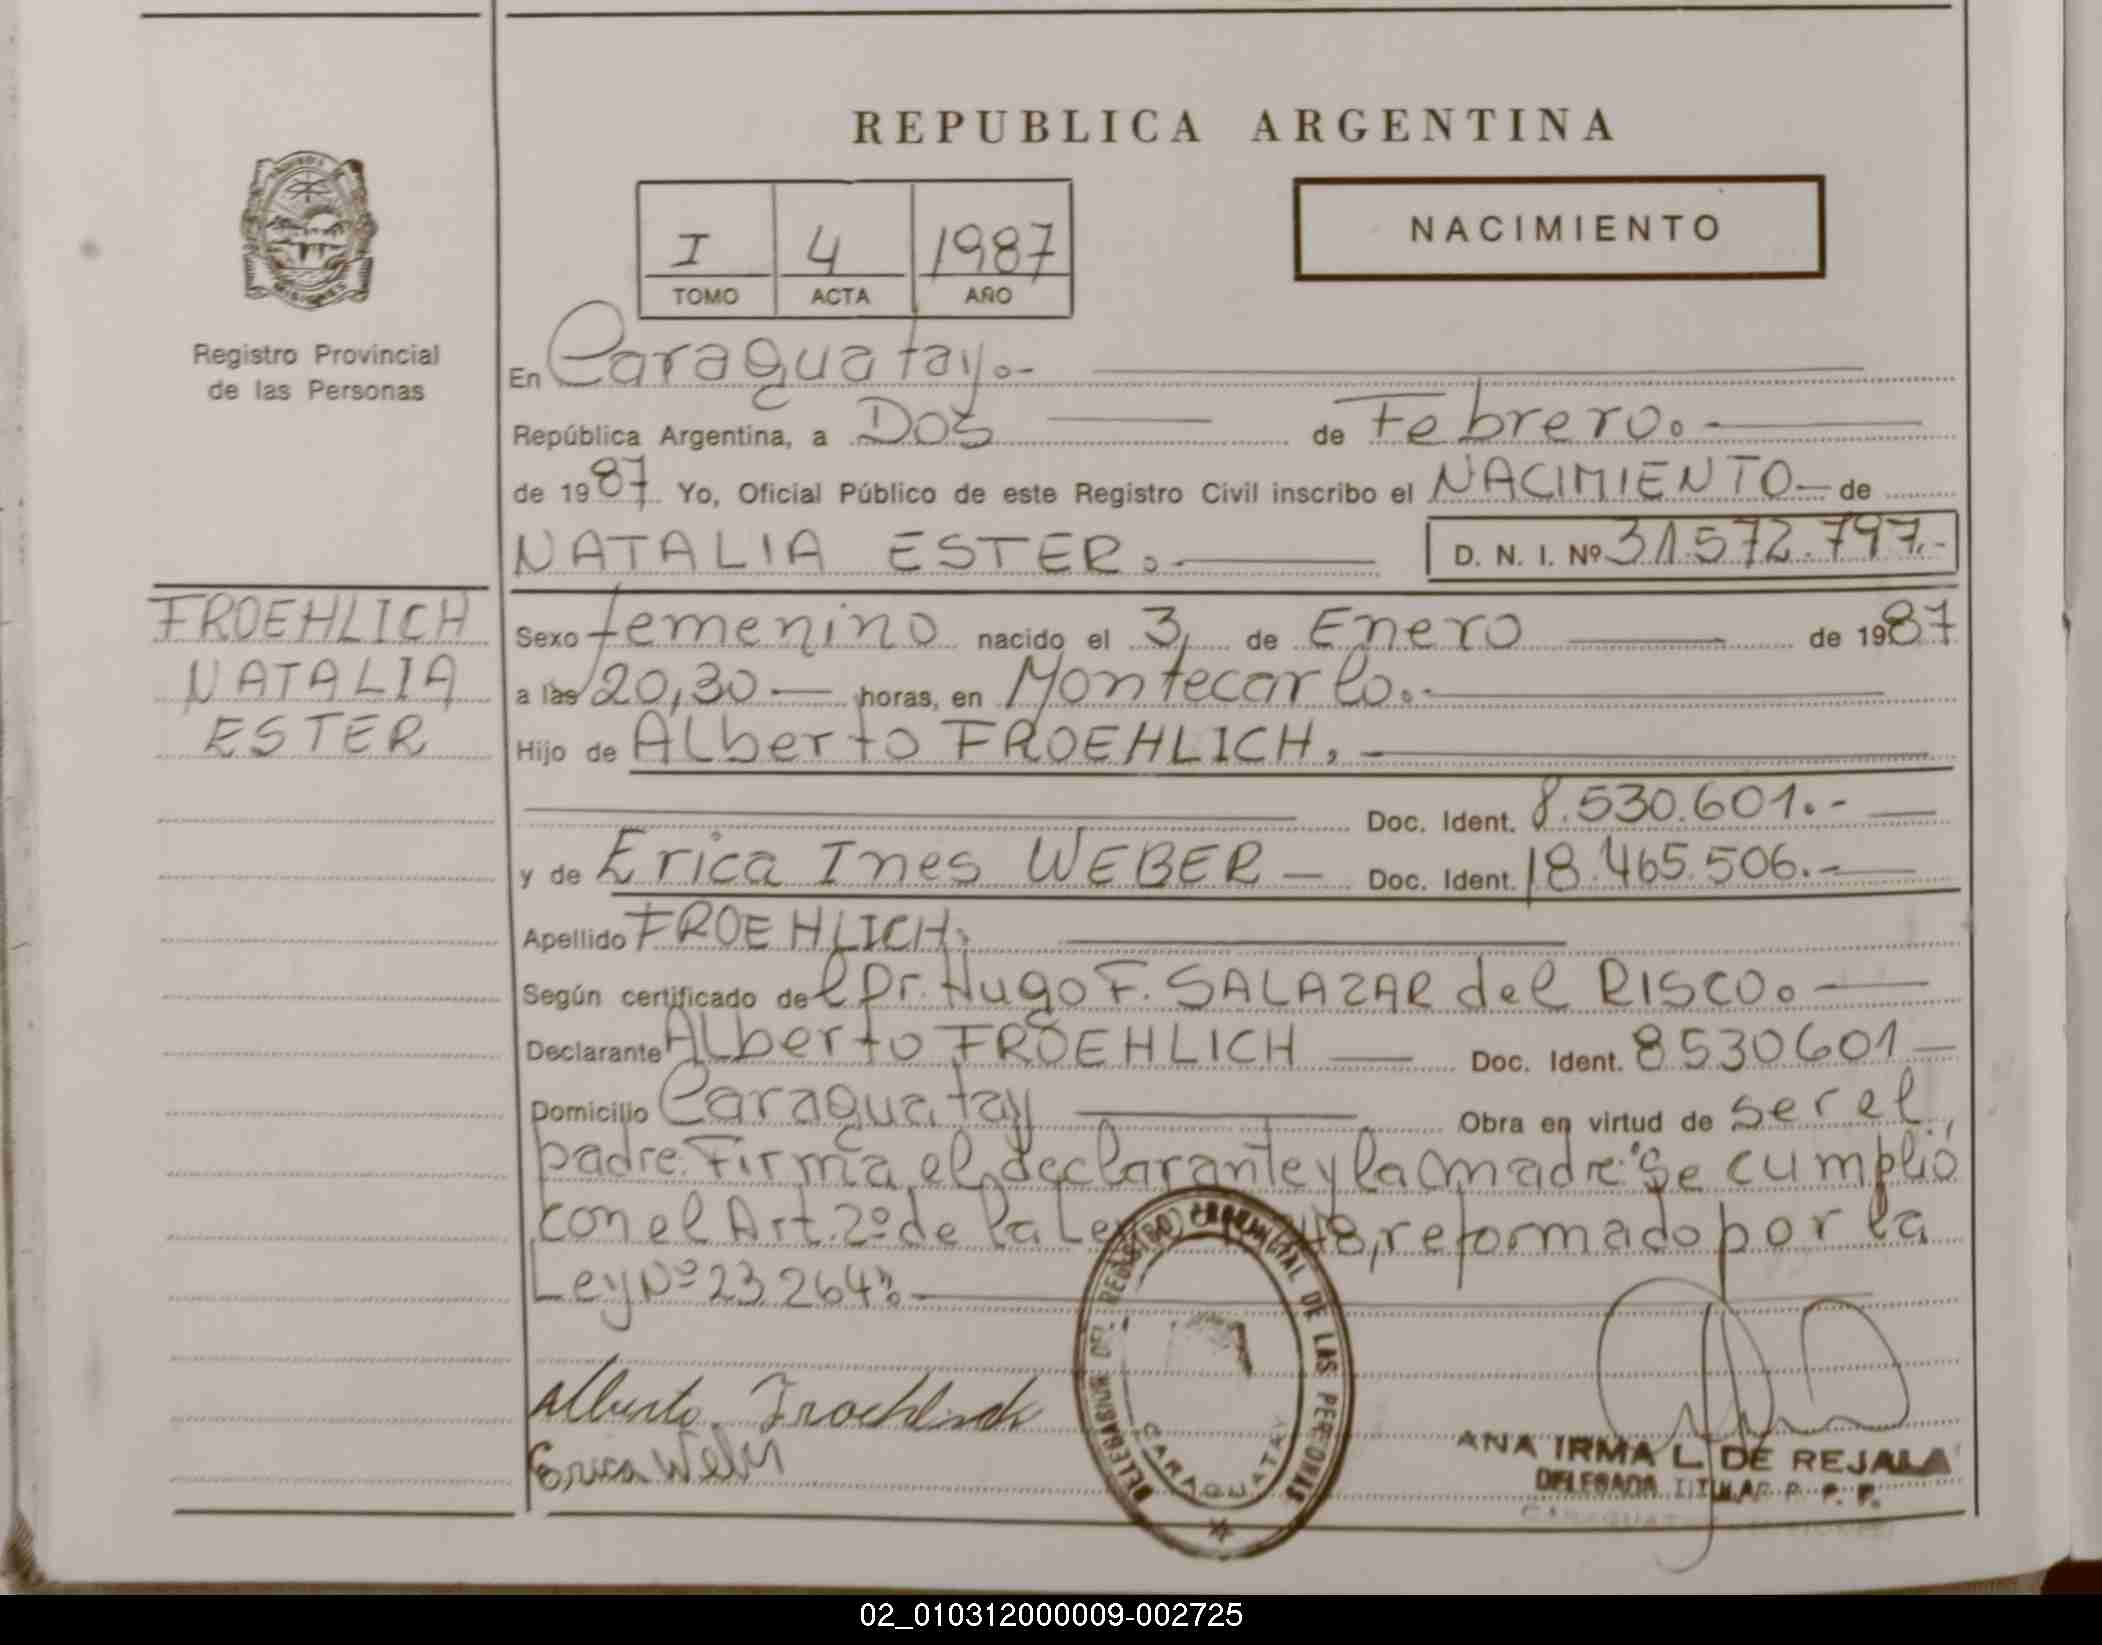 REPUBLICA ARGENTINA
I 4 1987
TOMO ACTA AÑO
NACIMIENTO
Registro Provincial
de las Personas
En Caraguatay.-
República Argentina, a Dos de Febrero.-
de 1987. Yo, Oficial Público de este Registro Civil inscribo el NACIMIENTO de
NATALIA ESTER.- D. N. I. Nº 31.572.797.-
FROEHLICH
NATALIA
ESTER
Sexo femenino nacido el 3, de Enero de 1987
a las 20,30 horas, en Montecarlo.-
Hijo de Alberto FROEHLICH,
Doc. Ident. 8.530.601.-
y de Erica Ines WEBER Doc. Ident. 18.465.506.-
Apellido FROEHLICH.
Según certificado del Dr. Hugo F. SALAZAR del RISCO.
Declarante Alberto FROEHLICH Doc. Ident. 8530601
Domicilio Caraguatay Obra en virtud de ser el
padre. Firma el declarante y la madre. "Se cumplió
con el Art. 2º de la Ley reformado por la
Ley Nº 23.264".
Alberto Froehlich
Erica Weber
DEL REGISTRO PROVINCIAL DE LAS PERSONAS
CARAGUATAY
ANA IRMA L. DE REJALA
DELEGADA TITULAR R. P. P.
02_010312000009-002725